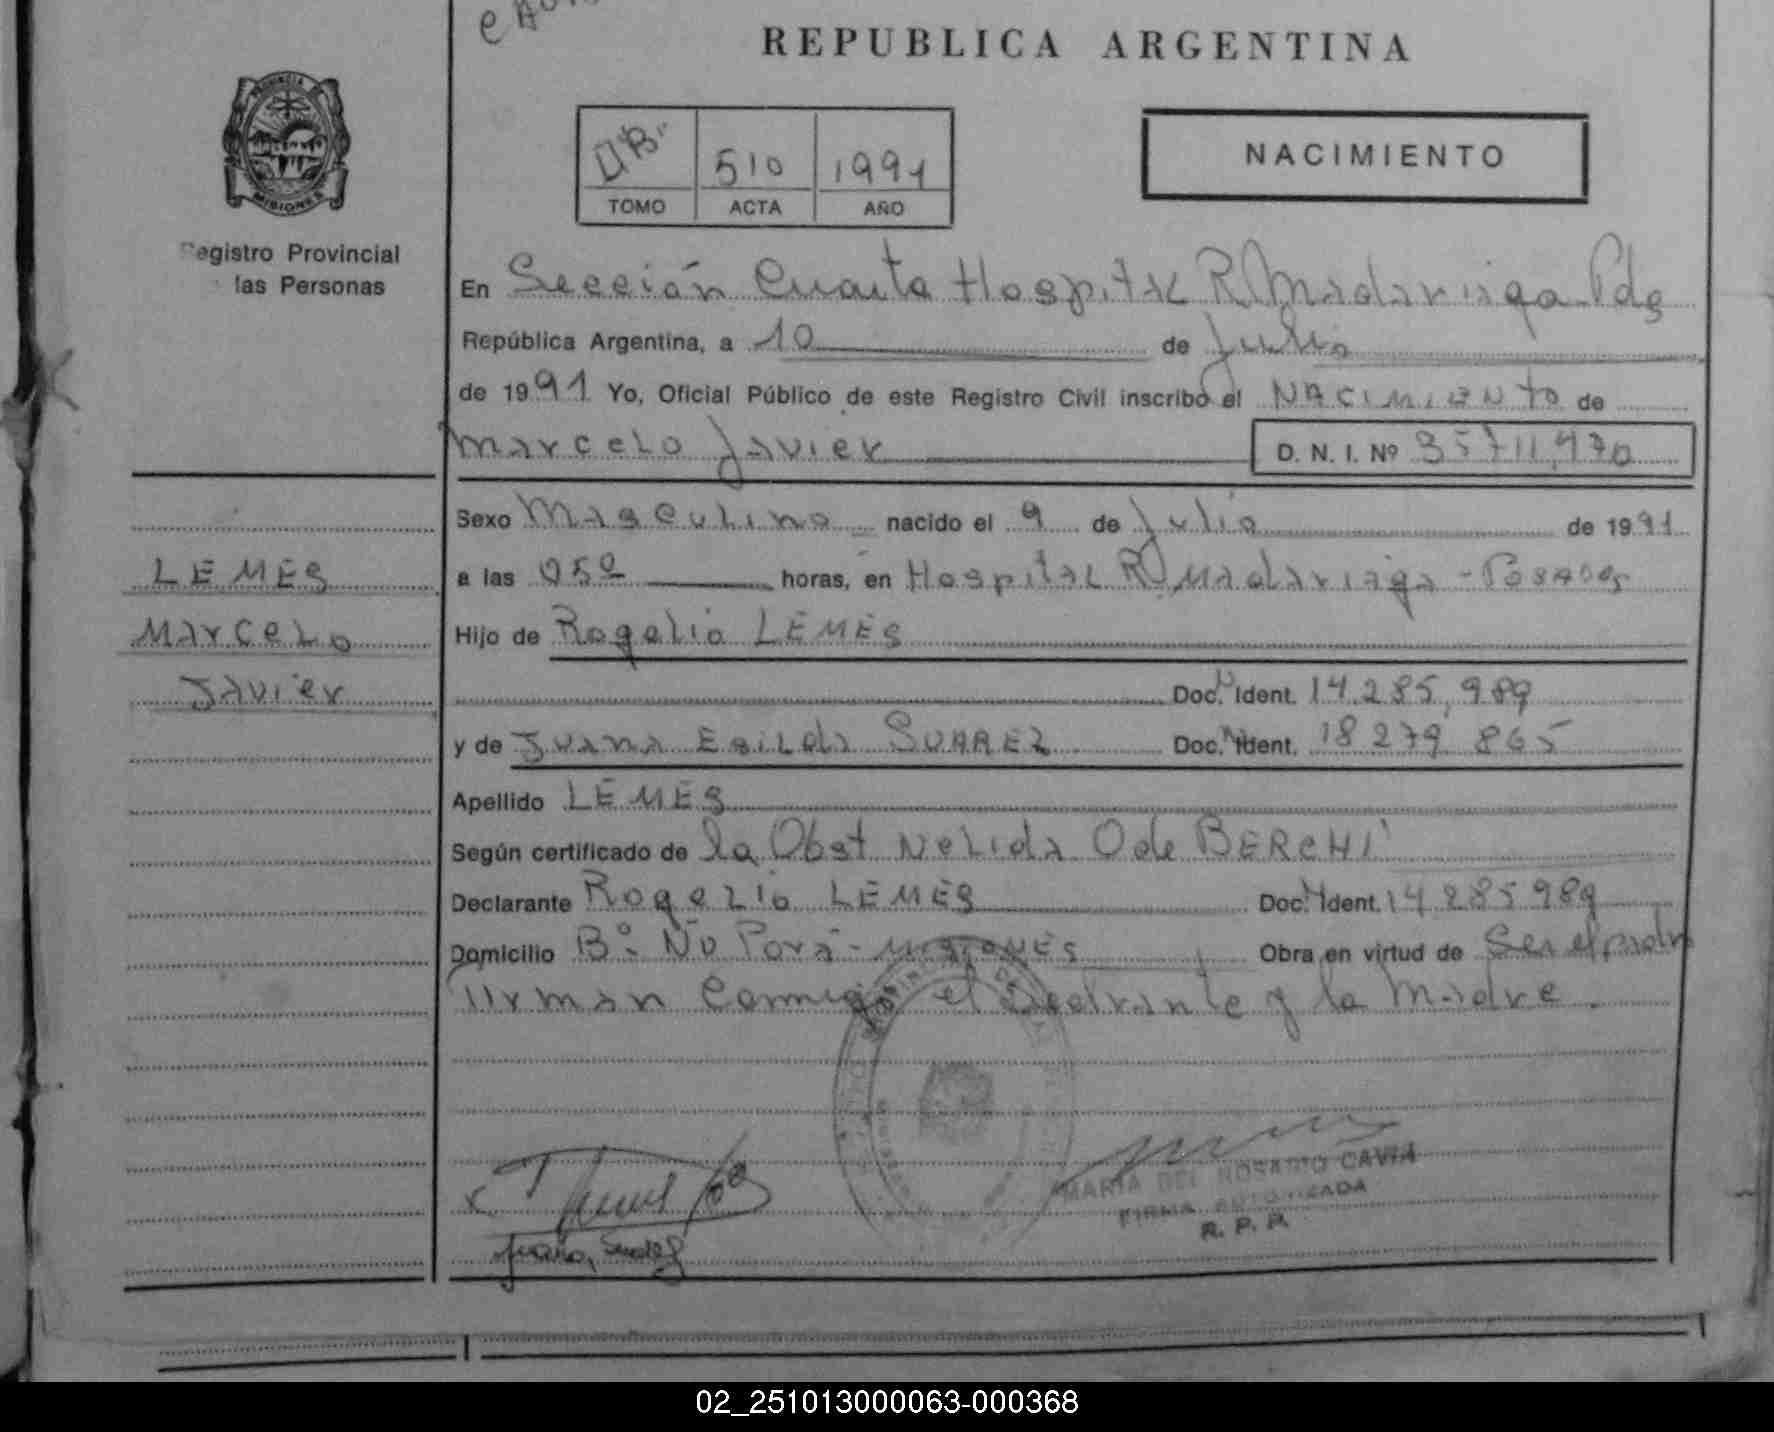 REPUBLICA ARGENTINA
PROVINCIA DE
MISIONES
TOMO
510 ACTA
1991 AÑO
NACIMIENTO
egistro Provincial
las Personas
En Sección Cuarta Hospital R Madariaga Pdas
República Argentina, a 10 de Julio
de 1991 Yo, Oficial Público de este Registro Civil inscribo el NACIMIENTO de
Marcelo Javier D. N. I. Nº 35711.470
Sexo Masculino nacido el 9 de Julio de 1991
LEMES
a las 050 horas, en Hospital R Madariaga - Posadas
Marcelo
Hijo de Rogelio LEMES
Javier
Doc. Ident. 14.285.989
y de Juana Egilda SUAREZ Doc. Ident. 18 279 865
Apellido LEMES
Según certificado de la Obst Nelida O de BERCHI
Declarante Rogelio LEMES Doc. Ident. 14 285 989
Domicilio Bº Ñu Porá - Misiones Obra en virtud de Ser el padre
Firman Conmigo el Declarante y la Madre.
MARIA DEL ROSARIO CAVIA
FIRMA AUTORIZADA
R. P. P.
Juana, Suarez
02_251013000063-000368